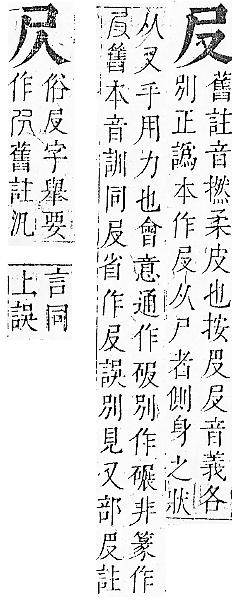 㞋
舊註音撚柔皮也按㞋㞋音義各
別正譌本作㞋从尸者側身之狀
从又手用力也會意通作別作碾非篆作
舊本音訓同㞋省作㞋誤別見又部㞋註
㞌
俗㞋字舉要
作舊註汎
言同
上誤